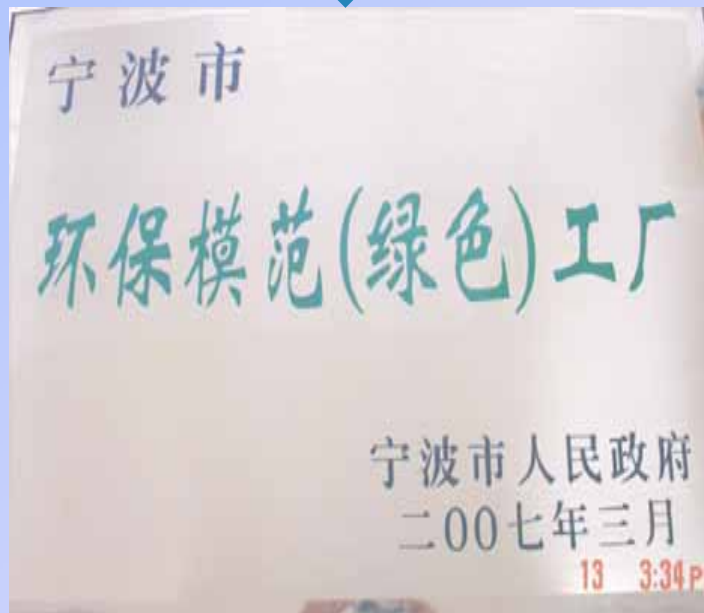 宁波市
环保模范(绿色)工厂
宁波市人民政府
二00七年三月
13 3:34P